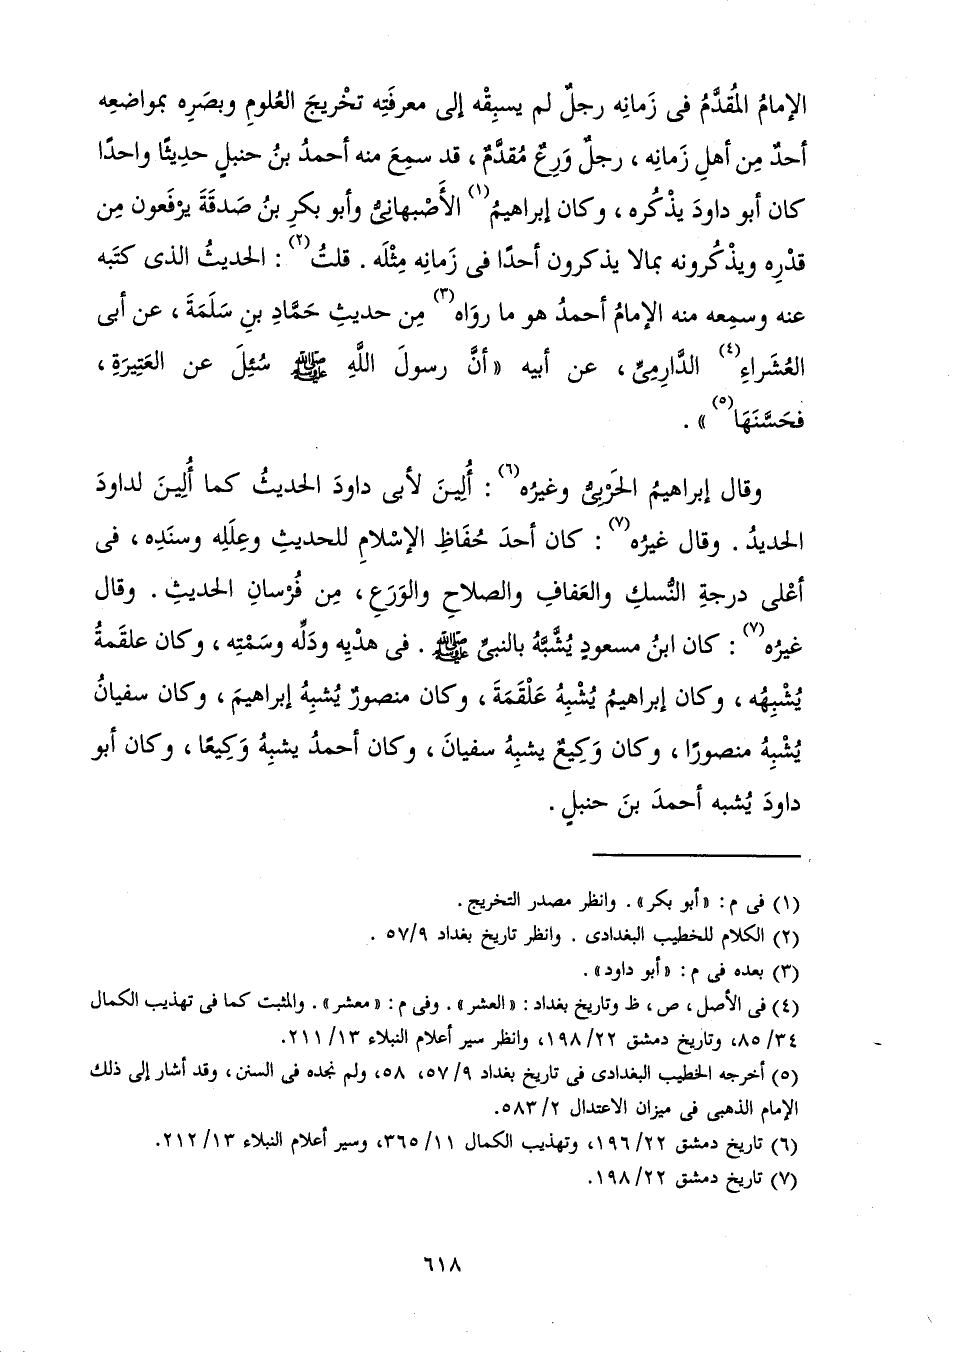 الإمامُ المُقدَّمُ فى زَمانِه رجلٌ لم يسبِقْه إلى معرفَتِه تخْريجَ العُلومِ وبصَرِه بمواضعِه
أحدٌ مِن أهلِ زَمانِه ، رجلٌ وَرِعٌ مُقدَّمٌ ، قد سمِعَ منه أحمدُ بنُ حنبلٍ حديثًا واحدًا
كان أبو داودَ يذْكُره ، وكان إبراهيمُ(١) الأَصْبهانىُّ وأبو بكرِ بنُ صَدقَةَ يرْفَعون مِن
قدْرِه ويذْكُرونه بمالا يذكرون أحدًا فى زَمانِه مِثْلَه . قلتُ(٢) : الحديثُ الذى كتَبه
عنه وسمِعه منه الإمامُ أحمدُ هو ما روَاه(٣) مِن حديثِ حَمَّادِ بنِ سَلَمَةَ ، عن أبى
العُشَراءِ(٤) الدَّارِمِىِّ ، عن أبيه « أنَّ رسولَ اللَّهِ ﷺ سُئِلَ عن العَتِيرَةِ ،
فحَسَّنَهَا(٥) » .
وقال إبراهيمُ الحَرْبِىُّ وغيرُه(٦) : أُلِينَ لأبى داودَ الحديثُ كما أُلِينَ لداودَ
الحديدُ . وقال غيرُه(٧) : كان أحدَ حُفَاظِ الإسْلامِ للحديثِ وعِلَلِه وسنَدِه ، فى
أعْلى درجةِ النُّسكِ والعَفافِ والصلاحِ والوَرَعِ ، مِن فُرْسانِ الحديثِ . وقال
غيرُه(٧) : كان ابنُ مسعودٍ يُشَبَّهُ بالنبىِّ ﷺ . فى هدْيِه ودَلِّه وسَمْتِه ، وكان علقَمةُ
يُشْبِهُه ، وكان إبراهيمُ يُشْبِهُ عَلْقَمَةَ ، وكان منصورٌ يُشبِهُ إبراهيمَ ، وكان سفيانُ
يُشْبِهُ منصورًا ، وكان وَكِيعٌ يشبِهُ سفيانَ ، وكان أحمدُ يشبِهُ وَكِيعًا ، وكان أبو
داودَ يُشبه أحمدَ بنَ حنبلٍ .
(١) فى م : « أبو بكر » . وانظر مصدر التخريج .
(٢) الكلام للخطيب البغدادى . وانظر تاريخ بغداد ٥٧/٩ .
(٣) بعده فى م : « أبو داود » .
(٤) فى الأصل ، ص ، ظ وتاريخ بغداد : « العشر » . وفى م : « معشر » . والمثبت كما فى تهذيب الكمال
٨٥/٣٤، وتاريخ دمشق ١٩٨/٢٢، وانظر سير أعلام النبلاء ٢١١/١٣.
(٥) أخرجه الخطيب البغدادى فى تاريخ بغداد ٥٧/٩، ٥٨، ولم نجده فى السنن ، وقد أشار إلى ذلك
الإمام الذهبى فى ميزان الاعتدال ٥٨٣/٢.
(٦) تاريخ دمشق ١٩٦/٢٢، وتهذيب الكمال ٣٦٥/١١، وسير أعلام النبلاء ٢١٢/١٣.
(٧) تاريخ دمشق ١٩٨/٢٢.
٦١٨